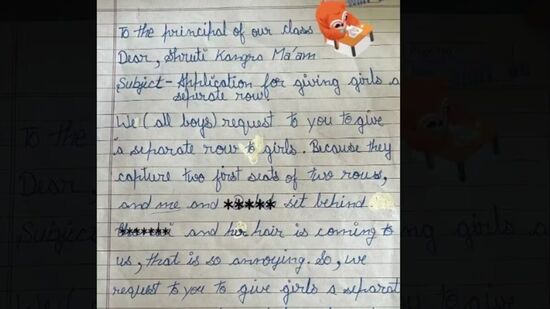 To the principal of our class
Dear, Shruti Kangra Ma'am
Subject - Application for giving girls a
seperate row.
We (all boys) request to you to give
a separate row to girls. Because they
capture two first seats of two rows,
and me and ***** sit behind
****** and her hair is coming to
us, that is so annoying. So, we
request to you to give girls a separat